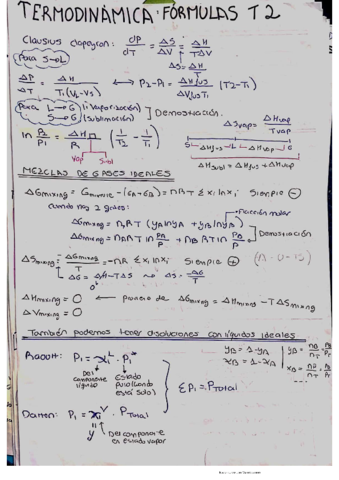 TERMODINÁMICA: FÓRMULAS T2
Clausius clapeyron: dP/dT = ΔS/ΔV = ΔH/TΔV
ΔS = ΔH/T
Para S→L
ΔP/ΔT = ΔH/T₁(VL-VS) ↔ P₂-P₁ = ΔHfus/ΔVfusT₁ (T₂-T₁)
Para L→G (Vaporización)
S→G (sublimación)
] Demostración.
ln P₂/P₁ = - ΔH/R (1/T₂ - 1/T₁)
Vap Subl
ΔSvap = ΔHvap/Tvap
S ΔHfus L ΔHvap G
ΔHsubl = ΔHfus + ΔHvap
MEZCLAS DE GASES IDEALES
ΔGmixing = Gmixture - (GA+GB) = nRT Σ xi ln xi Siempre ⊖
cuando hay 2 gases:
fracción molar
ΔGmixing = nRT (yA ln yA + yB ln yB)
ΔGmixing = nART ln PA/P + nBRT ln PB/P
] Demostración
ΔSmixing = -ΔGmixing/T = -nR Σ xi ln xi Siempre ⊕
ΔG = ΔH - TΔS → ΔS = -ΔG/T
0
ΔHmixing = 0 ← proviene de ΔGmixing = ΔHmixing - TΔSmixing
ΔVmixing = 0
También podemos tener disoluciones con líquidos ideales
Raoult: Pi = xiL · Pi*
Del componente líquido
Estado puro (cuando está solo)
yB = 1-yA
xB = 1-xA
yB = nB/nT
xB = nB/nT
ΣPi = Ptotal
Dalton: Pi = xiV · Ptotal
y
Del componente en estado vapor